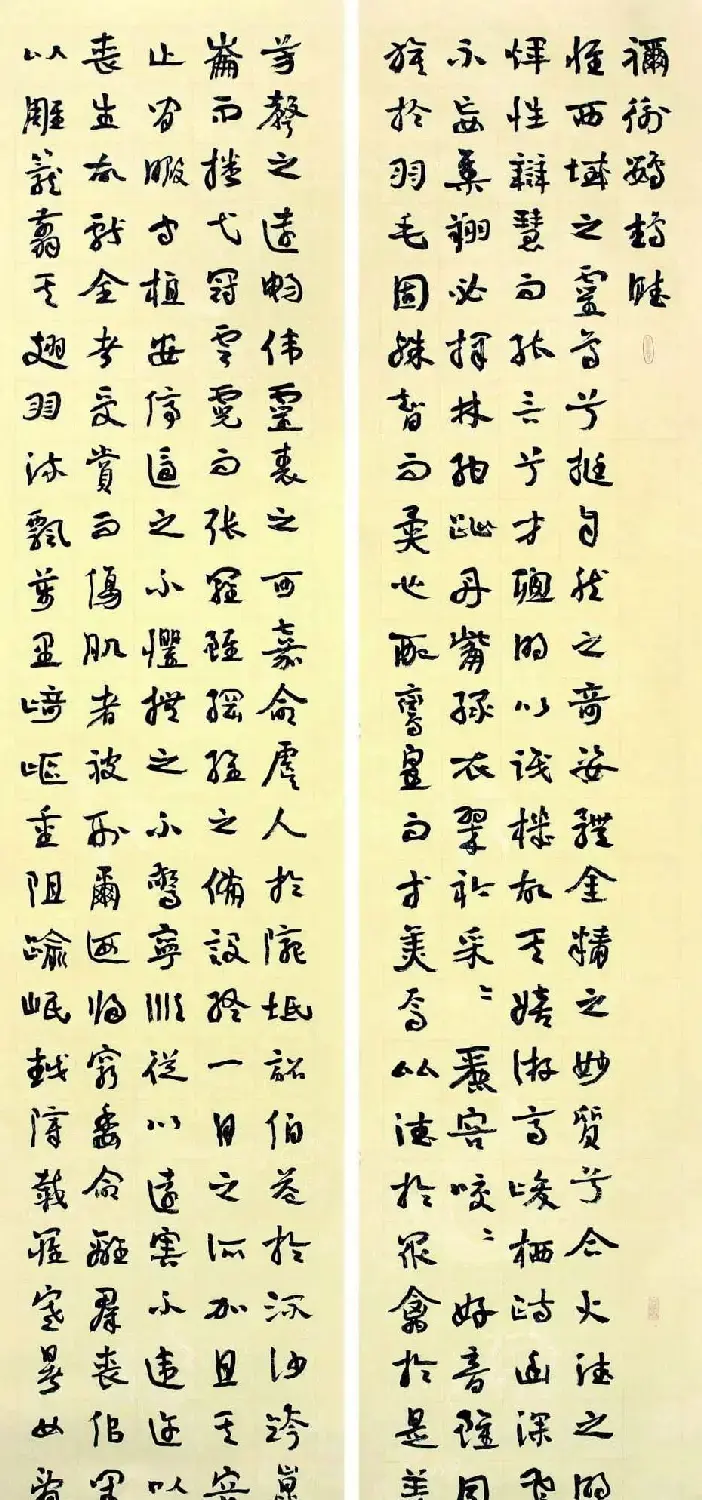 禰衡鸚鵡賦
惟西域之靈鳥兮挺自然之奇姿體金精之妙質兮合火德之明
輝性辯慧而能言兮才聰明以識機故其嬉游高峻栖跱幽深飛
不妄集翔必擇林紺趾丹觜綠衣翠衿采〻麗容咬〻好音雖同
族於羽毛固殊智而異心配鸞皇而等美焉比德於衆禽於是羨
芳聲之遠暢偉靈表之可嘉命虞人於隴坻詔伯益於流沙跨崑
崙而播弋冠雲霓而張羅雖綱維之備設終一目之所加且其容
止閑暇守植安停逼之不懼撫之不驚寧順從以遠害不違迕以
喪生故獻全者受賞而傷肌者被刑爾迺歸窮委命離群喪侶閉
以雕籠翦其翅羽流飄萬里崎嶇重阻踰岷越障載罹寒暑女辭